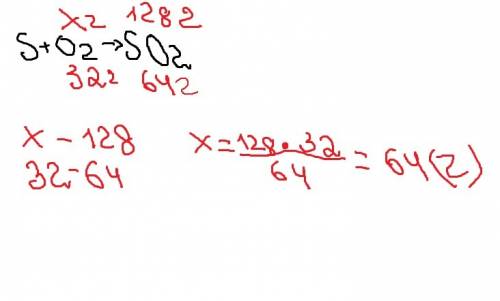 x г 128 г
S+O2→SO2
32 г 64 г
x – 128
32 – 64
x = 128 · 32 / 64 = 64 (г)